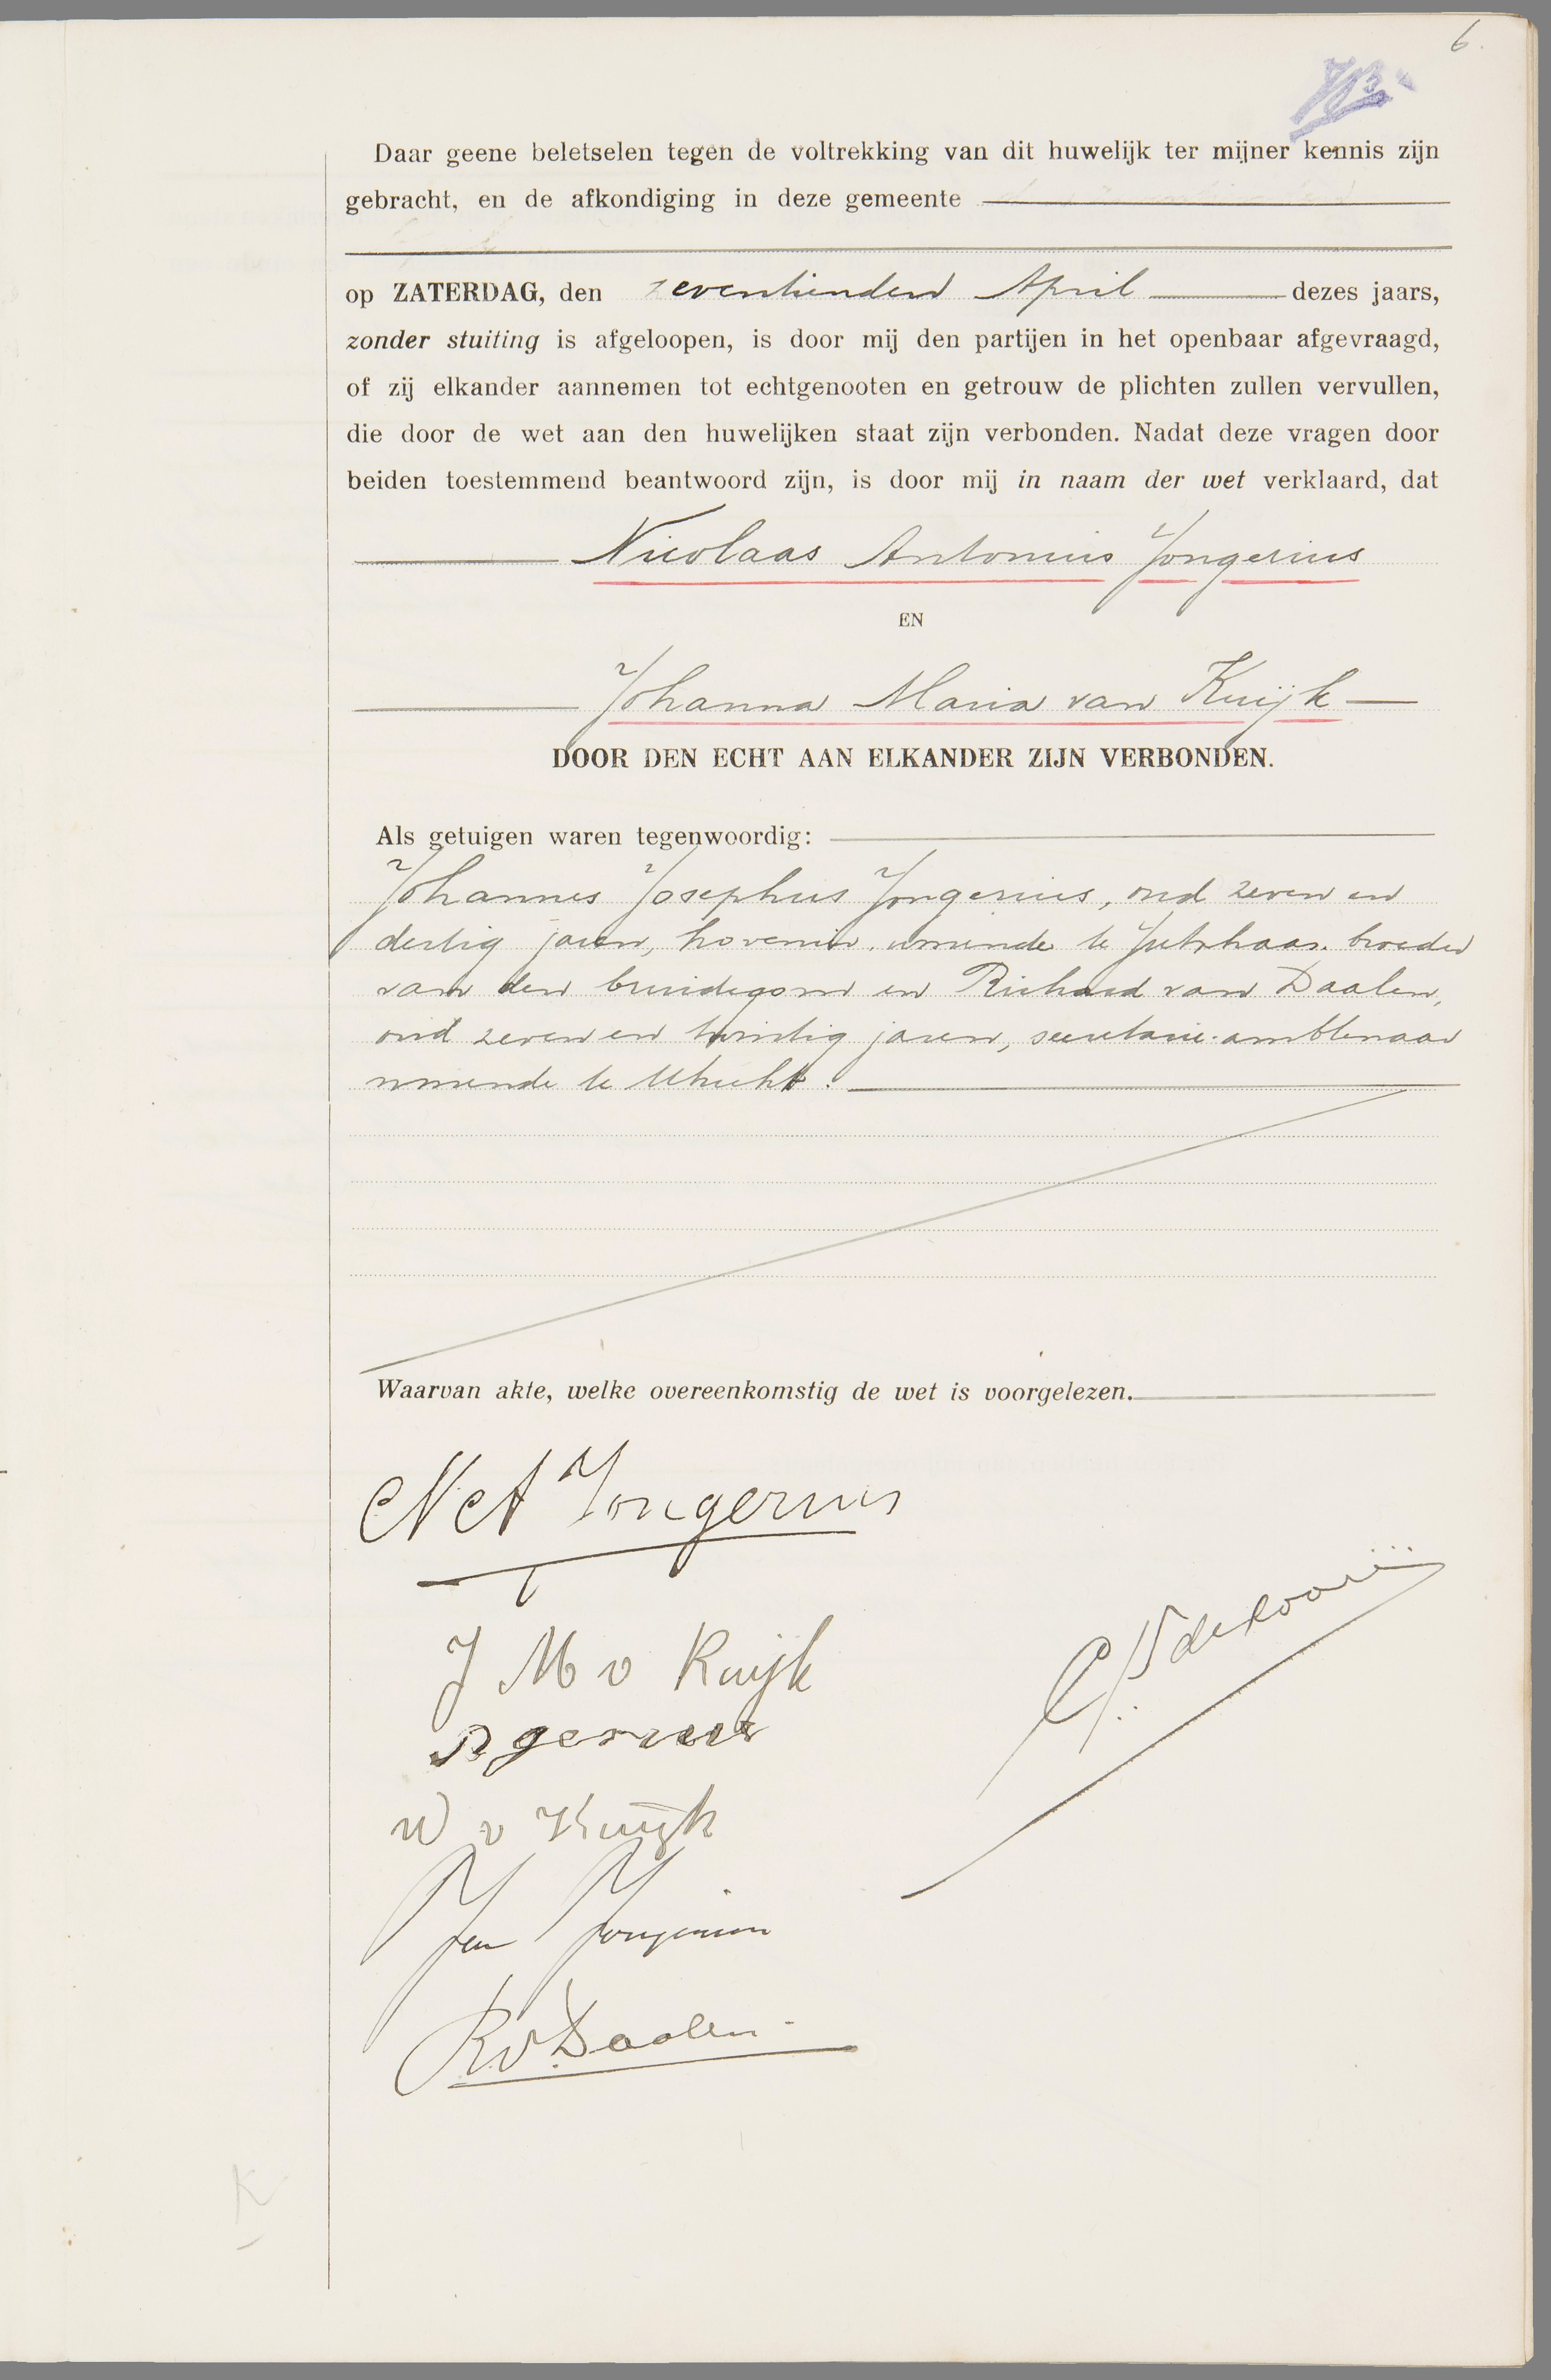 6.
Daar geene beletselen tegen de voltrekking van dit huwelijk ter mijner kennis zijn
gebracht, en de afkondiging in deze gemeente
op ZATERDAG, den zeventienden April dezes jaars,
zonder stuiting is afgeloopen, is door mij den partijen in het openbaar afgevraagd,
of zij elkander aannemen tot echtgenooten en getrouw de plichten zullen vervullen,
die door de wet aan den huwelijken staat zijn verbonden. Nadat deze vragen door
beiden toestemmend beantwoord zijn, is door mij in naam der wet verklaard, dat
Nicolaas Antonius Jongerius
EN
Johanna Maria van Kuijk
DOOR DEN ECHT AAN ELKANDER ZIJN VERBONDEN.
Als getuigen waren tegenwoordig:
Johannes Josephus Jongerius, oud zeven en
dertig jaren, hovenier, wonende te Jutphaas, broeder
van den bruidegom en Richard van Daalen,
oud zeven en twintig jaren, secretarie-ambtenaar
wonende te Utrecht.
Waarvan akte, welke overeenkomstig de wet is voorgelezen.
N A Jongerius
J M v Kuijk
W v Kuijk
Jongerius
R. v. Daalen
K